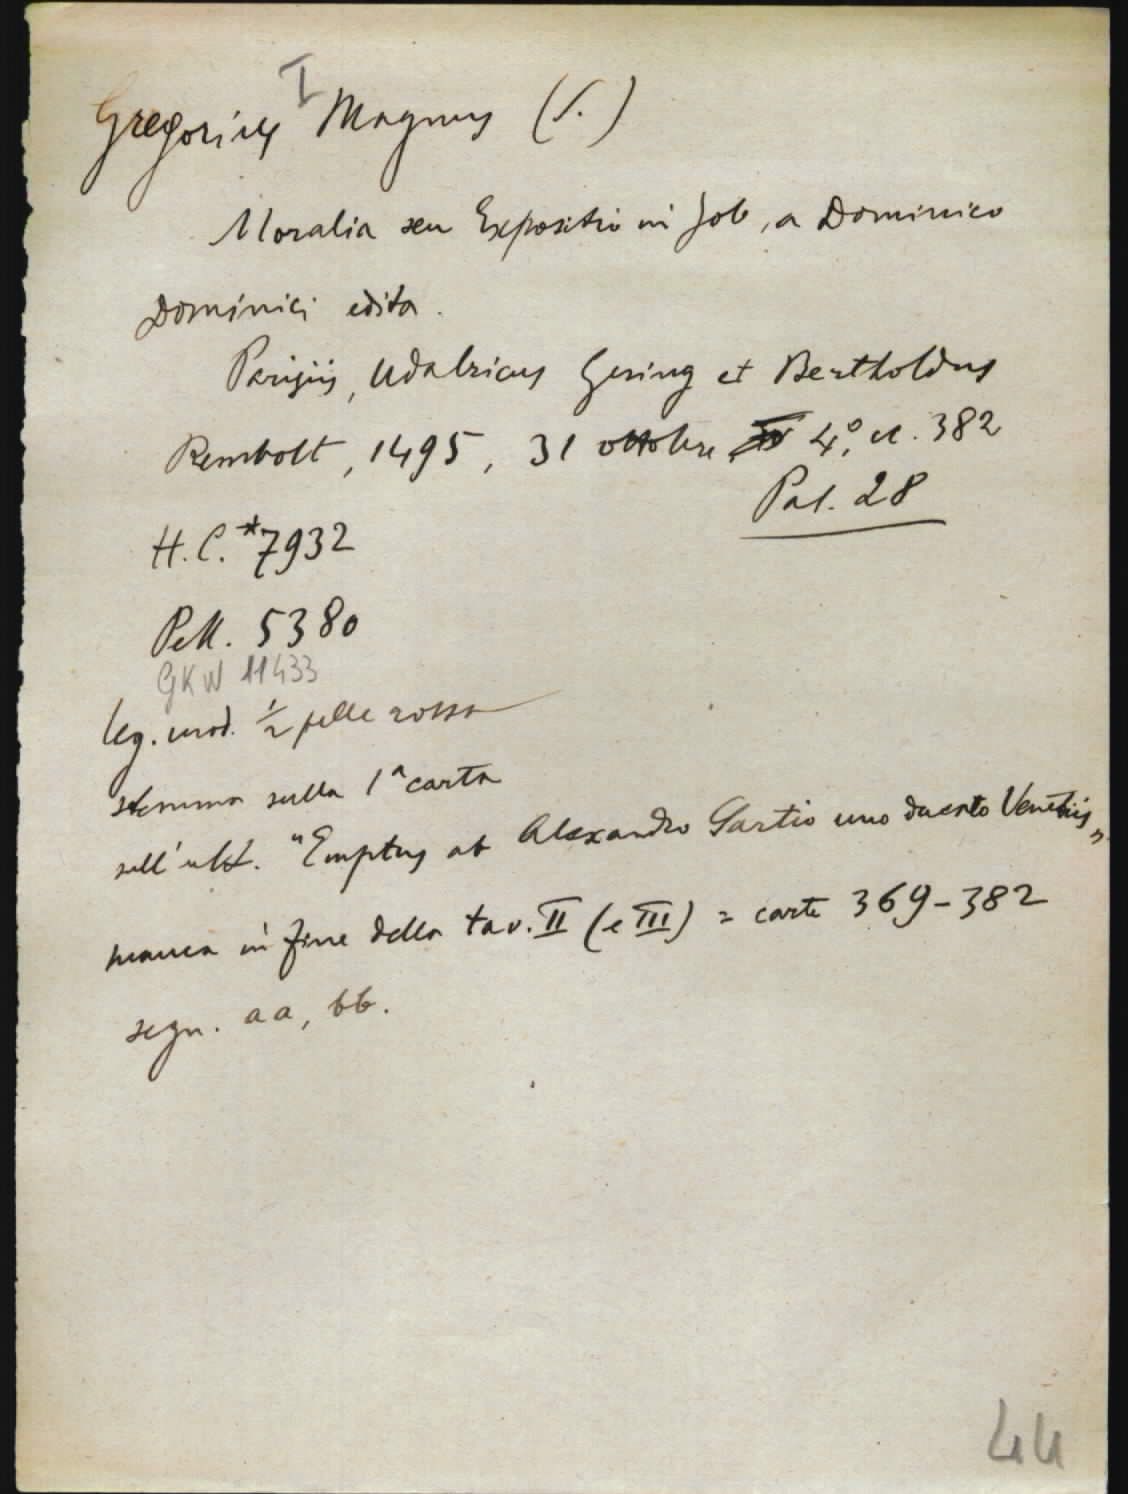 Gregorius I Magnus (S.)
Moralia seu Expositio in Job, a Dominico
Dominici edita.
Parisiis, Udalricus Gering et Bertholdus
Rembolt, 1495, 31 ottobre 4°, cc. 382
Pal. 28
H.C. *7932
Pell. 5380
GKW 11433
leg. mod. 1/2 pelle rossa
stemma sulla 1a carta
sull'ult. "Emptus ab Alexandro uno ducato Venetiis"
manca in fine della tav. II (e III) = carte 369-382
segn. aa, bb.
44